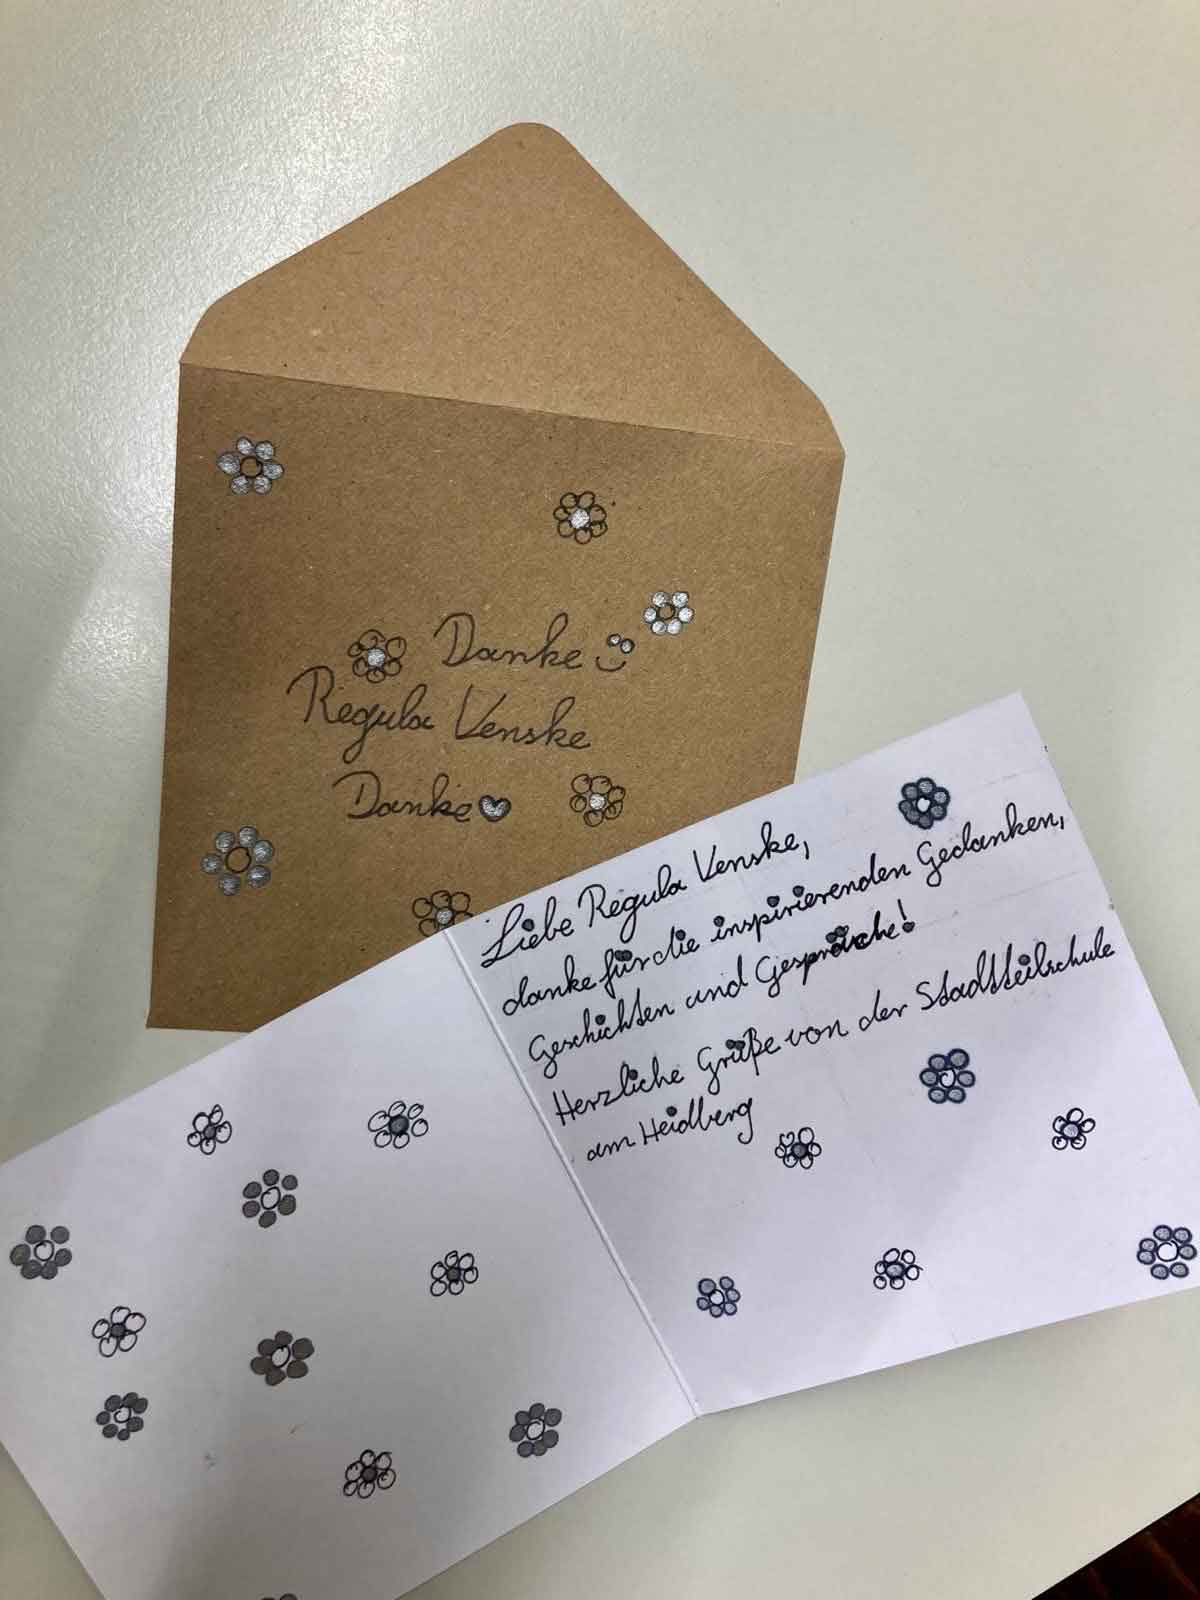 Danke
Regula Venske
Danke
Liebe Regula Venske,
danke für die inspirierenden Gedanken,
Geschichten und Gespräche!
Herzliche Grüße von der Stadtteilschule
am Heidberg